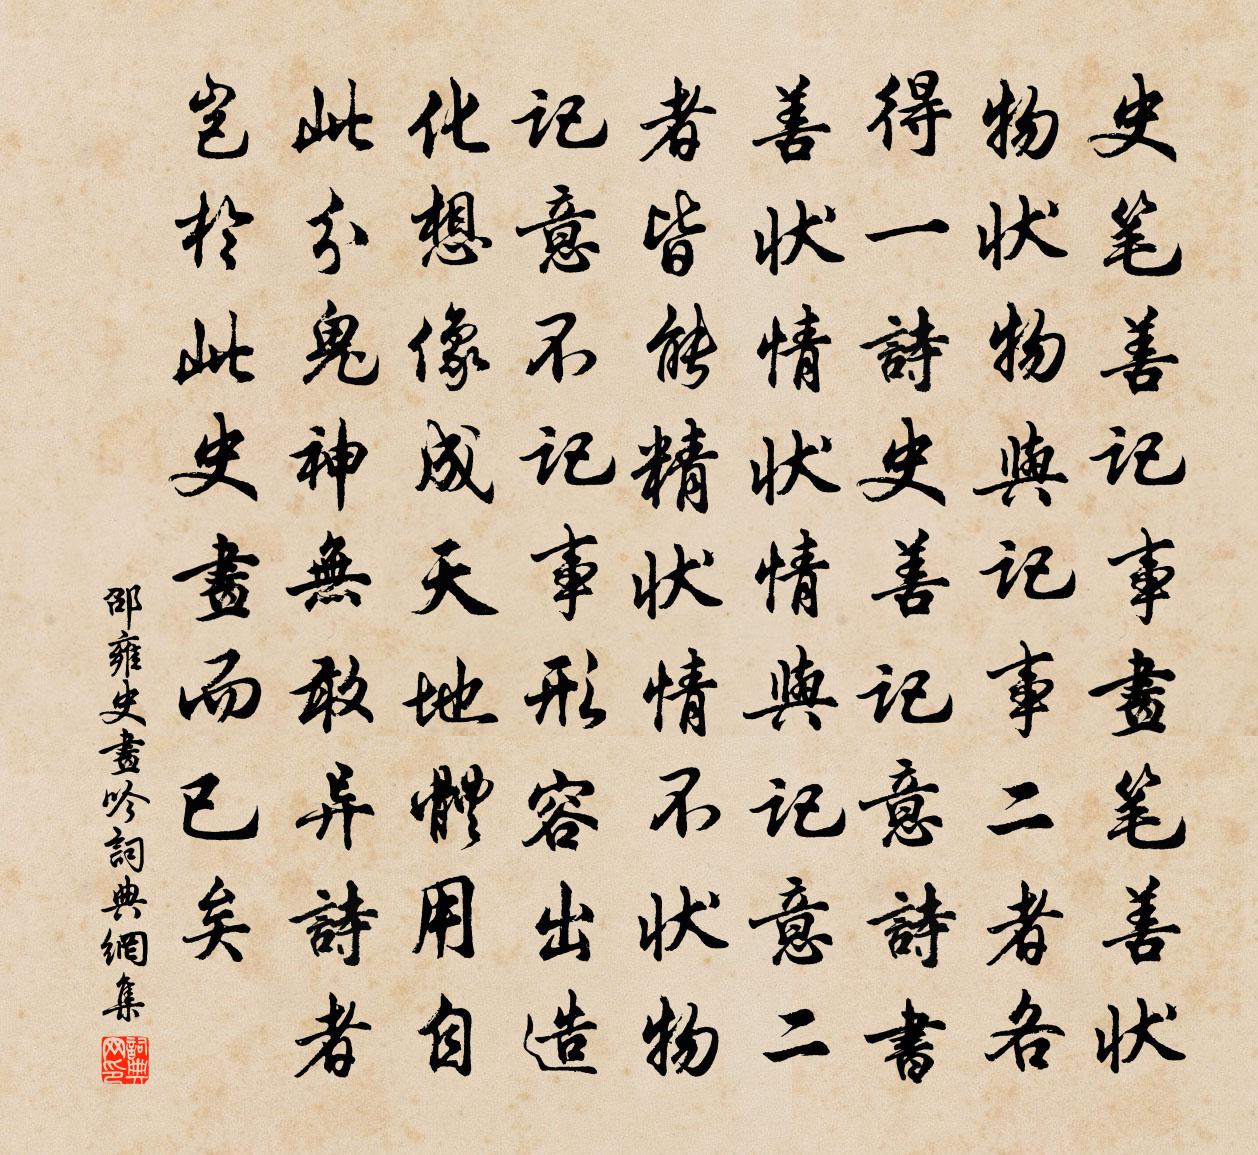 史笔善记事畫笔善状
物状物與记事二者各
得一詩史善记意詩書
善状情状情與记意二
者皆能精状情不状物
记意不记事形容出造
化想像成天地體用自
此分鬼神無敢异詩者
岂於此史畫而已矣
邵雍史畫吟詞典網集
詞典网印